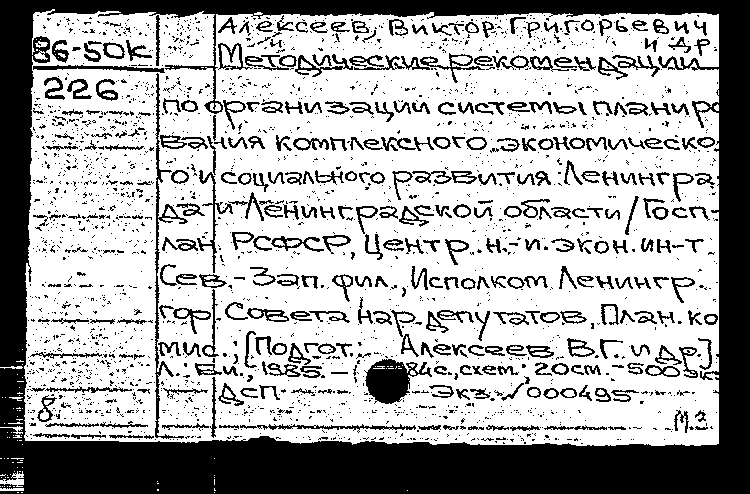 Алексеев, Виктор Григорьевич
и др.
86-50к
Методические рекомендации
226
по организации системы планиро
вания комплексного экономическо
го и социального развития Ленингра
да и Ленинградской области / Госп-
лан РСФСР, Центр. н.-и. экон. ин-т
Сев.-Зап. фил., Исполком Ленингр.
гор. Совета нар. депутатов, План. ко
мис.; [Подгот.: Алексеев В.Г. и др].
Л.: Б.и., 1985. - 84с., схем.; 20см. - 500 эк
ДСП Экз. √ 000495.
8.